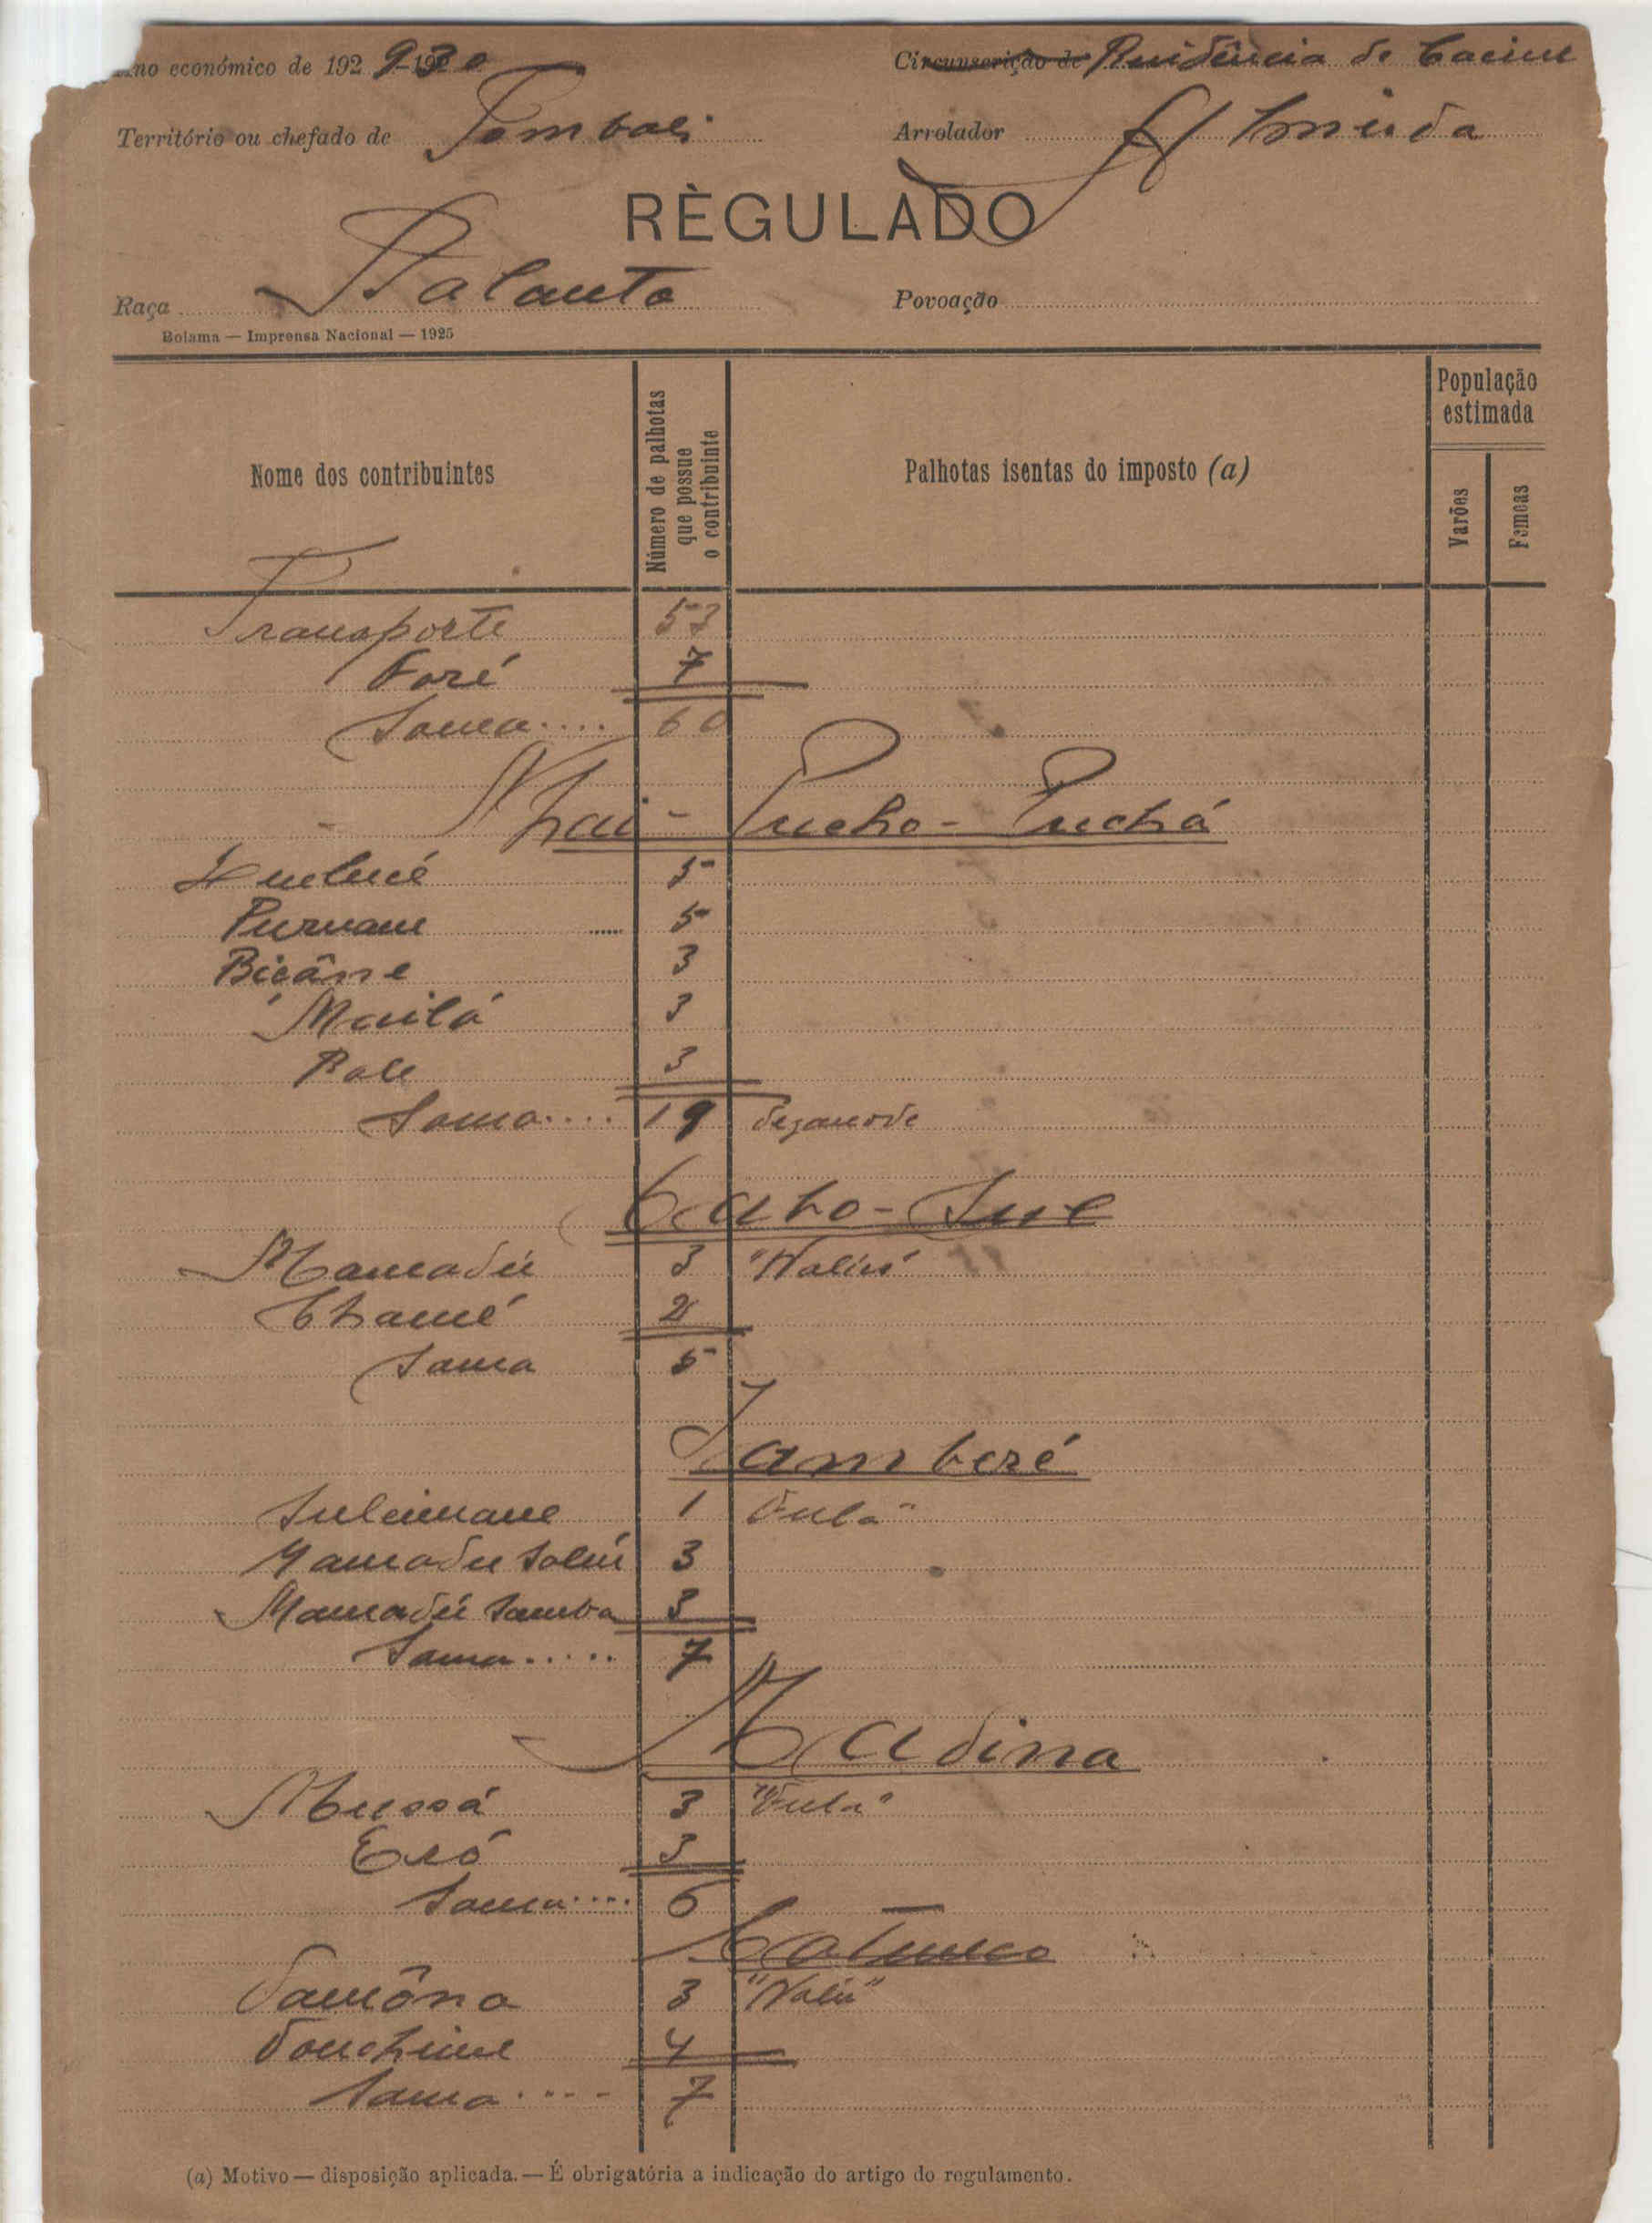 no económico de 1929-1930
Circunscrição de Residência de Cacine
Território ou chefado de Tombali
Arrolador Almeida
RÈGULADO
Raça Balanta
Povoação
Bolama — Imprensa Nacional — 1925
Nome dos contribuintes
Número de palhotas que possue o contribuinte
Palhotas isentas do imposto (a)
População estimada
Varões
Femeas
Transporte 53
Foré 7
Soma.... 60
Pucho-Puchá
5
Purnane ...... 5
Biçâne 3
3
Bale 3
Soma.... 19 dezanove
Cabo-Sul
Mamadú 3 "Nalús"
Chamé 2
Soma 5
Jamberé
Suleimane 1 Fula"
Mamadu Saliú 3
Mamadú Samba 3
Soma..... 7
Madina
Mussá 3 "Fula"
3
Soma.... 6
Catunco
Famôna 3 "Nalú"
4
Soma.... 7
(a) Motivo — disposição aplicada. — É obrigatória a indicação do artigo do regulamento.